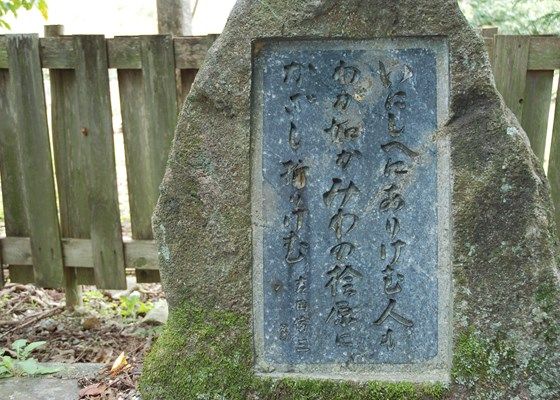 いにしへにありけむ人も
わが如かみわの檜原に
かざし折りけむ